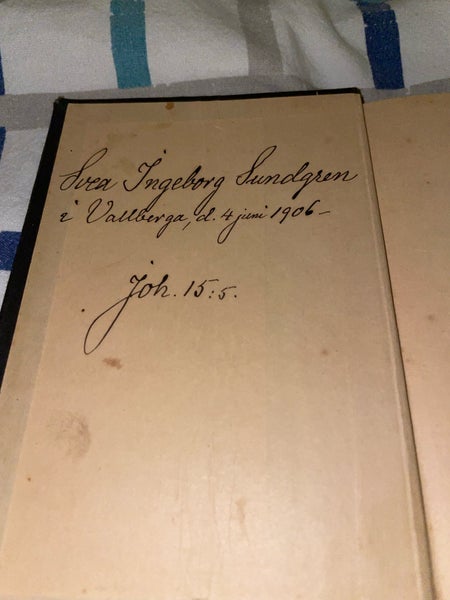 Svea Ingeborg Sundgren
i Vallberga, d. 4 juni 1906-
Joh. 15:5.